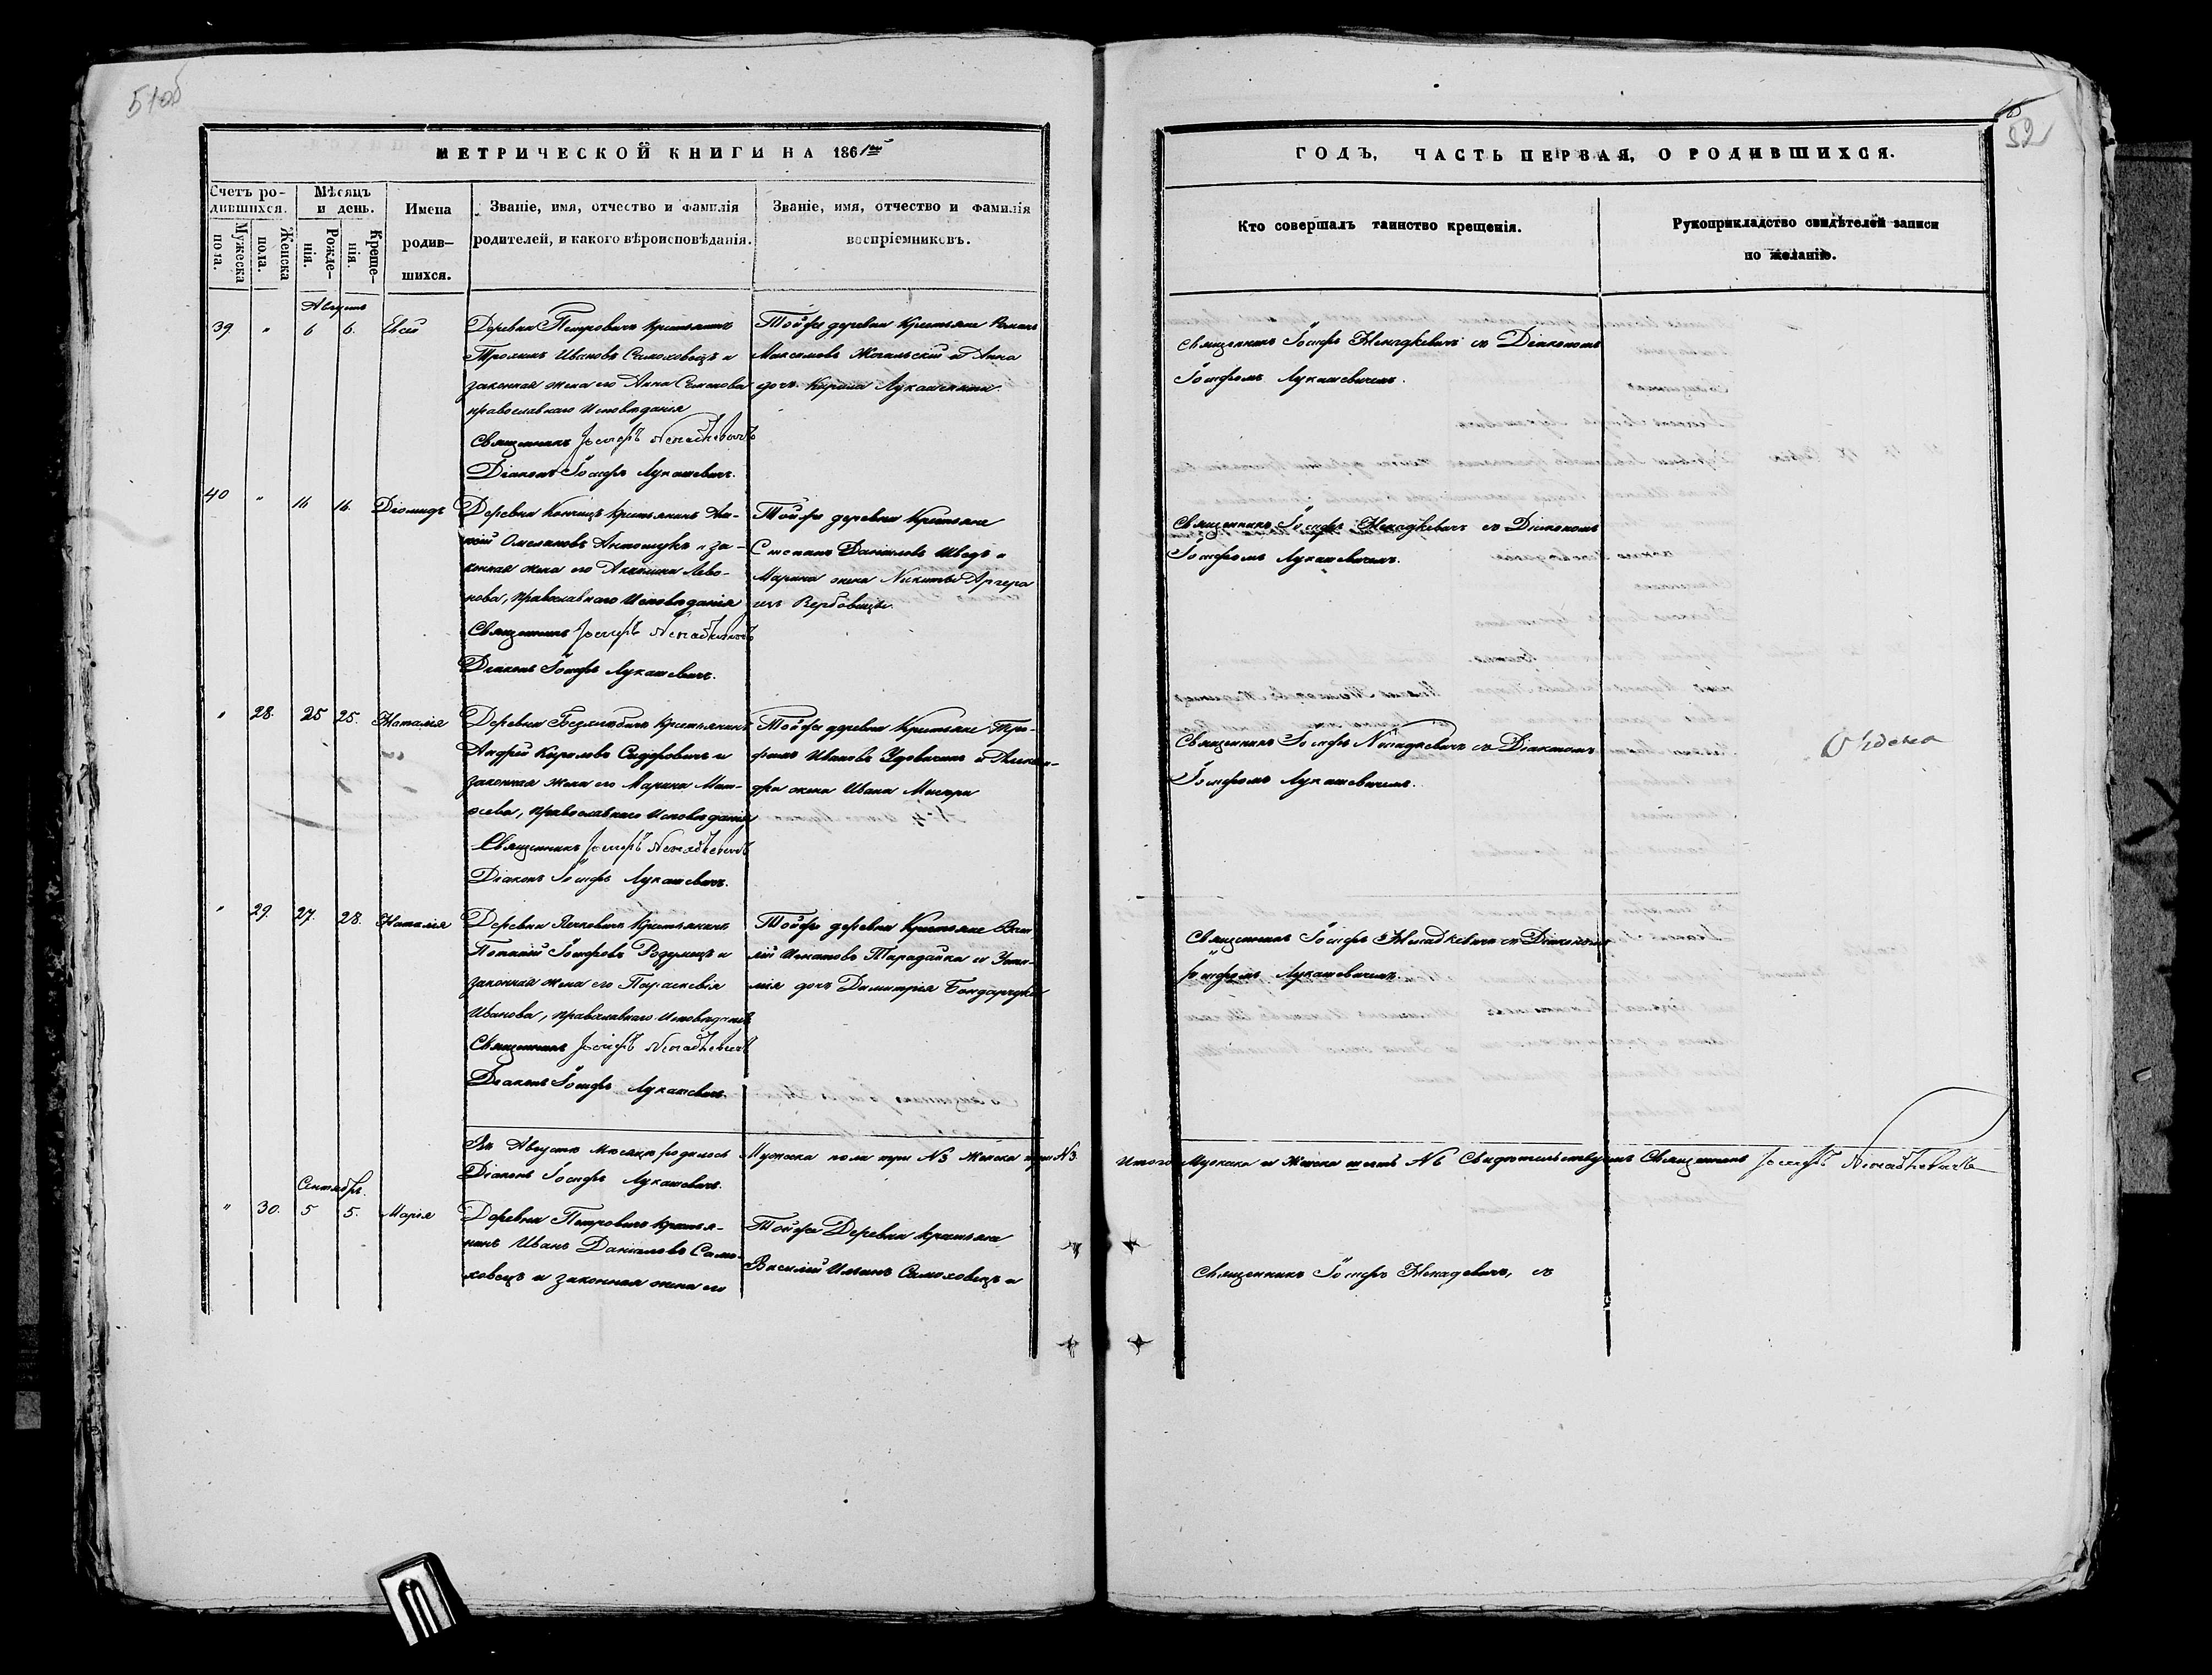 51об
МЕТРИЧЕСКОЙ КНИГИ НА 1861й
Счетъ ро-
дившихся.
Мужеска
пола.
Женска
пола.
Мѣсяцъ
и день.
Рожде-
нія.
Креще-
нія.
Имена
родив-
шихся.
Званіе, имя, отчество и фамилія
родителей, и какого вѣроисповѣданія.
Званіе, имя, отчество и фамилія
воспріемниковъ.
Августъ
39 " 6 6.
Деревни Петровичъ крестьянинъ
Ивановъ Самоховецъ и
законная жена его Анна Семенова
православнаго исповѣданія
Священникъ Іосифъ Ненадкевичъ
Діаконъ Іосифъ Лукашевичъ.
Тойже деревни крестьяне Романъ
Максимовъ и Анна
дочь Кирила
40 " 16 16. Діомидъ
Деревни крестьянинъ
Омеляновъ Антошукъ и за-
конная жена его Акилина Лево-
нова, православнаго исповѣданія
Священникъ Іосифъ Ненадкевичъ
Діаконъ Іосифъ Лукашевичъ.
Тойже деревни крестьяне
Степанъ Даніиловъ Шведъ и
Марина жена Никиты
изъ Вербовицы.
" 28. 25 25. Наталія
Деревни крестьянинъ
Андрей Кириловъ Сидоровичъ и
законная жена его Марина Мат-
ѳеева, православнаго исповѣданія
Священникъ Іосифъ Ненадкевичъ
Діаконъ Іосифъ Лукашевичъ.
Тойже деревни крестьяне Тро-
фимъ Ивановъ и Алексан-
дра жена Ивана
" 29. 27. 28. Наталія
Деревни крестьянинъ
Іосифовъ и
законная жена его Параскевія
Иванова, православнаго исповѣданія
Священникъ Іосифъ Ненадкевичъ
Діаконъ Іосифъ Лукашевичъ
Тойже деревни крестьяне Васи-
лій Игнатовъ Тарадайка и
дочь Димитрія Бондарчука
Въ Августѣ мѣсяцѣ родилось Мужеска пола три №3 Женска три №3
Діаконъ Іосифъ Лукашевичъ.
Сентябрь.
" 30. 5 5. Марія
Деревни Петровичъ крестья-
нинъ Иванъ Даніиловъ Само-
ховецъ и законная жена его
Тойже Деревни крестьяне
Василій Самоховецъ и
52
ГОДЪ, ЧАСТЬ ПЕРВАЯ, О РОДИВШИХСЯ.
Кто совершалъ таинство крещенія.
Рукоприкладство свидѣтелей записи
по желанію.
Священникъ Іосифъ Ненадкевичъ съ Діакономъ
Іосифомъ Лукашевичемъ.
Священникъ Іосифъ Ненадкевичъ съ Діакономъ
Іосифомъ Лукашевичемъ.
Священникъ Іосифъ Ненадкевичъ съ Діакономъ
Іосифомъ Лукашевичемъ.
Священникъ Іосифъ Ненадкевичъ съ Діакономъ
Іосифомъ Лукашевичемъ.
Итого Мужеска и Женска шесть №6 Свидѣтельствуемъ Священникъ Іосифъ Ненадкевичъ
Священникъ Іосифъ Ненадкевичъ, съ